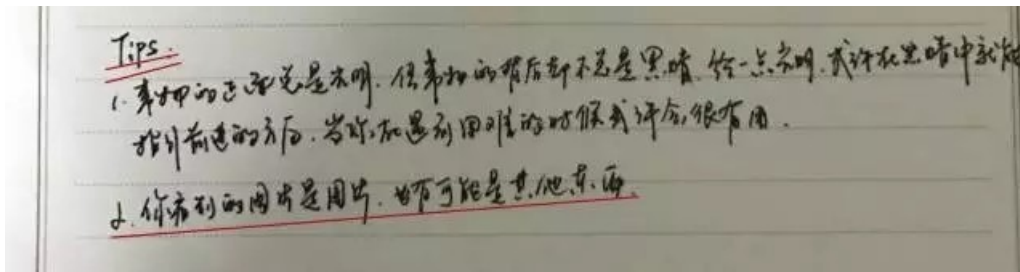 Tips.
1. 事物的正面总是光明. 但事物的背后却不总是黑暗. 给一点光明. 或许在黑暗中就能
指引前进的方向. 当你在遇到困难的时候或许会很有用.
2. 你看到的图片是图片. 也有可能是其他东西.